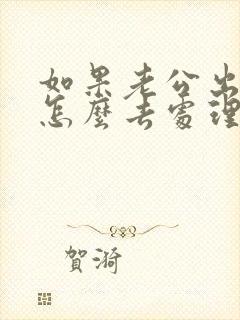 如果老公出
怎麼去處理
賀漪